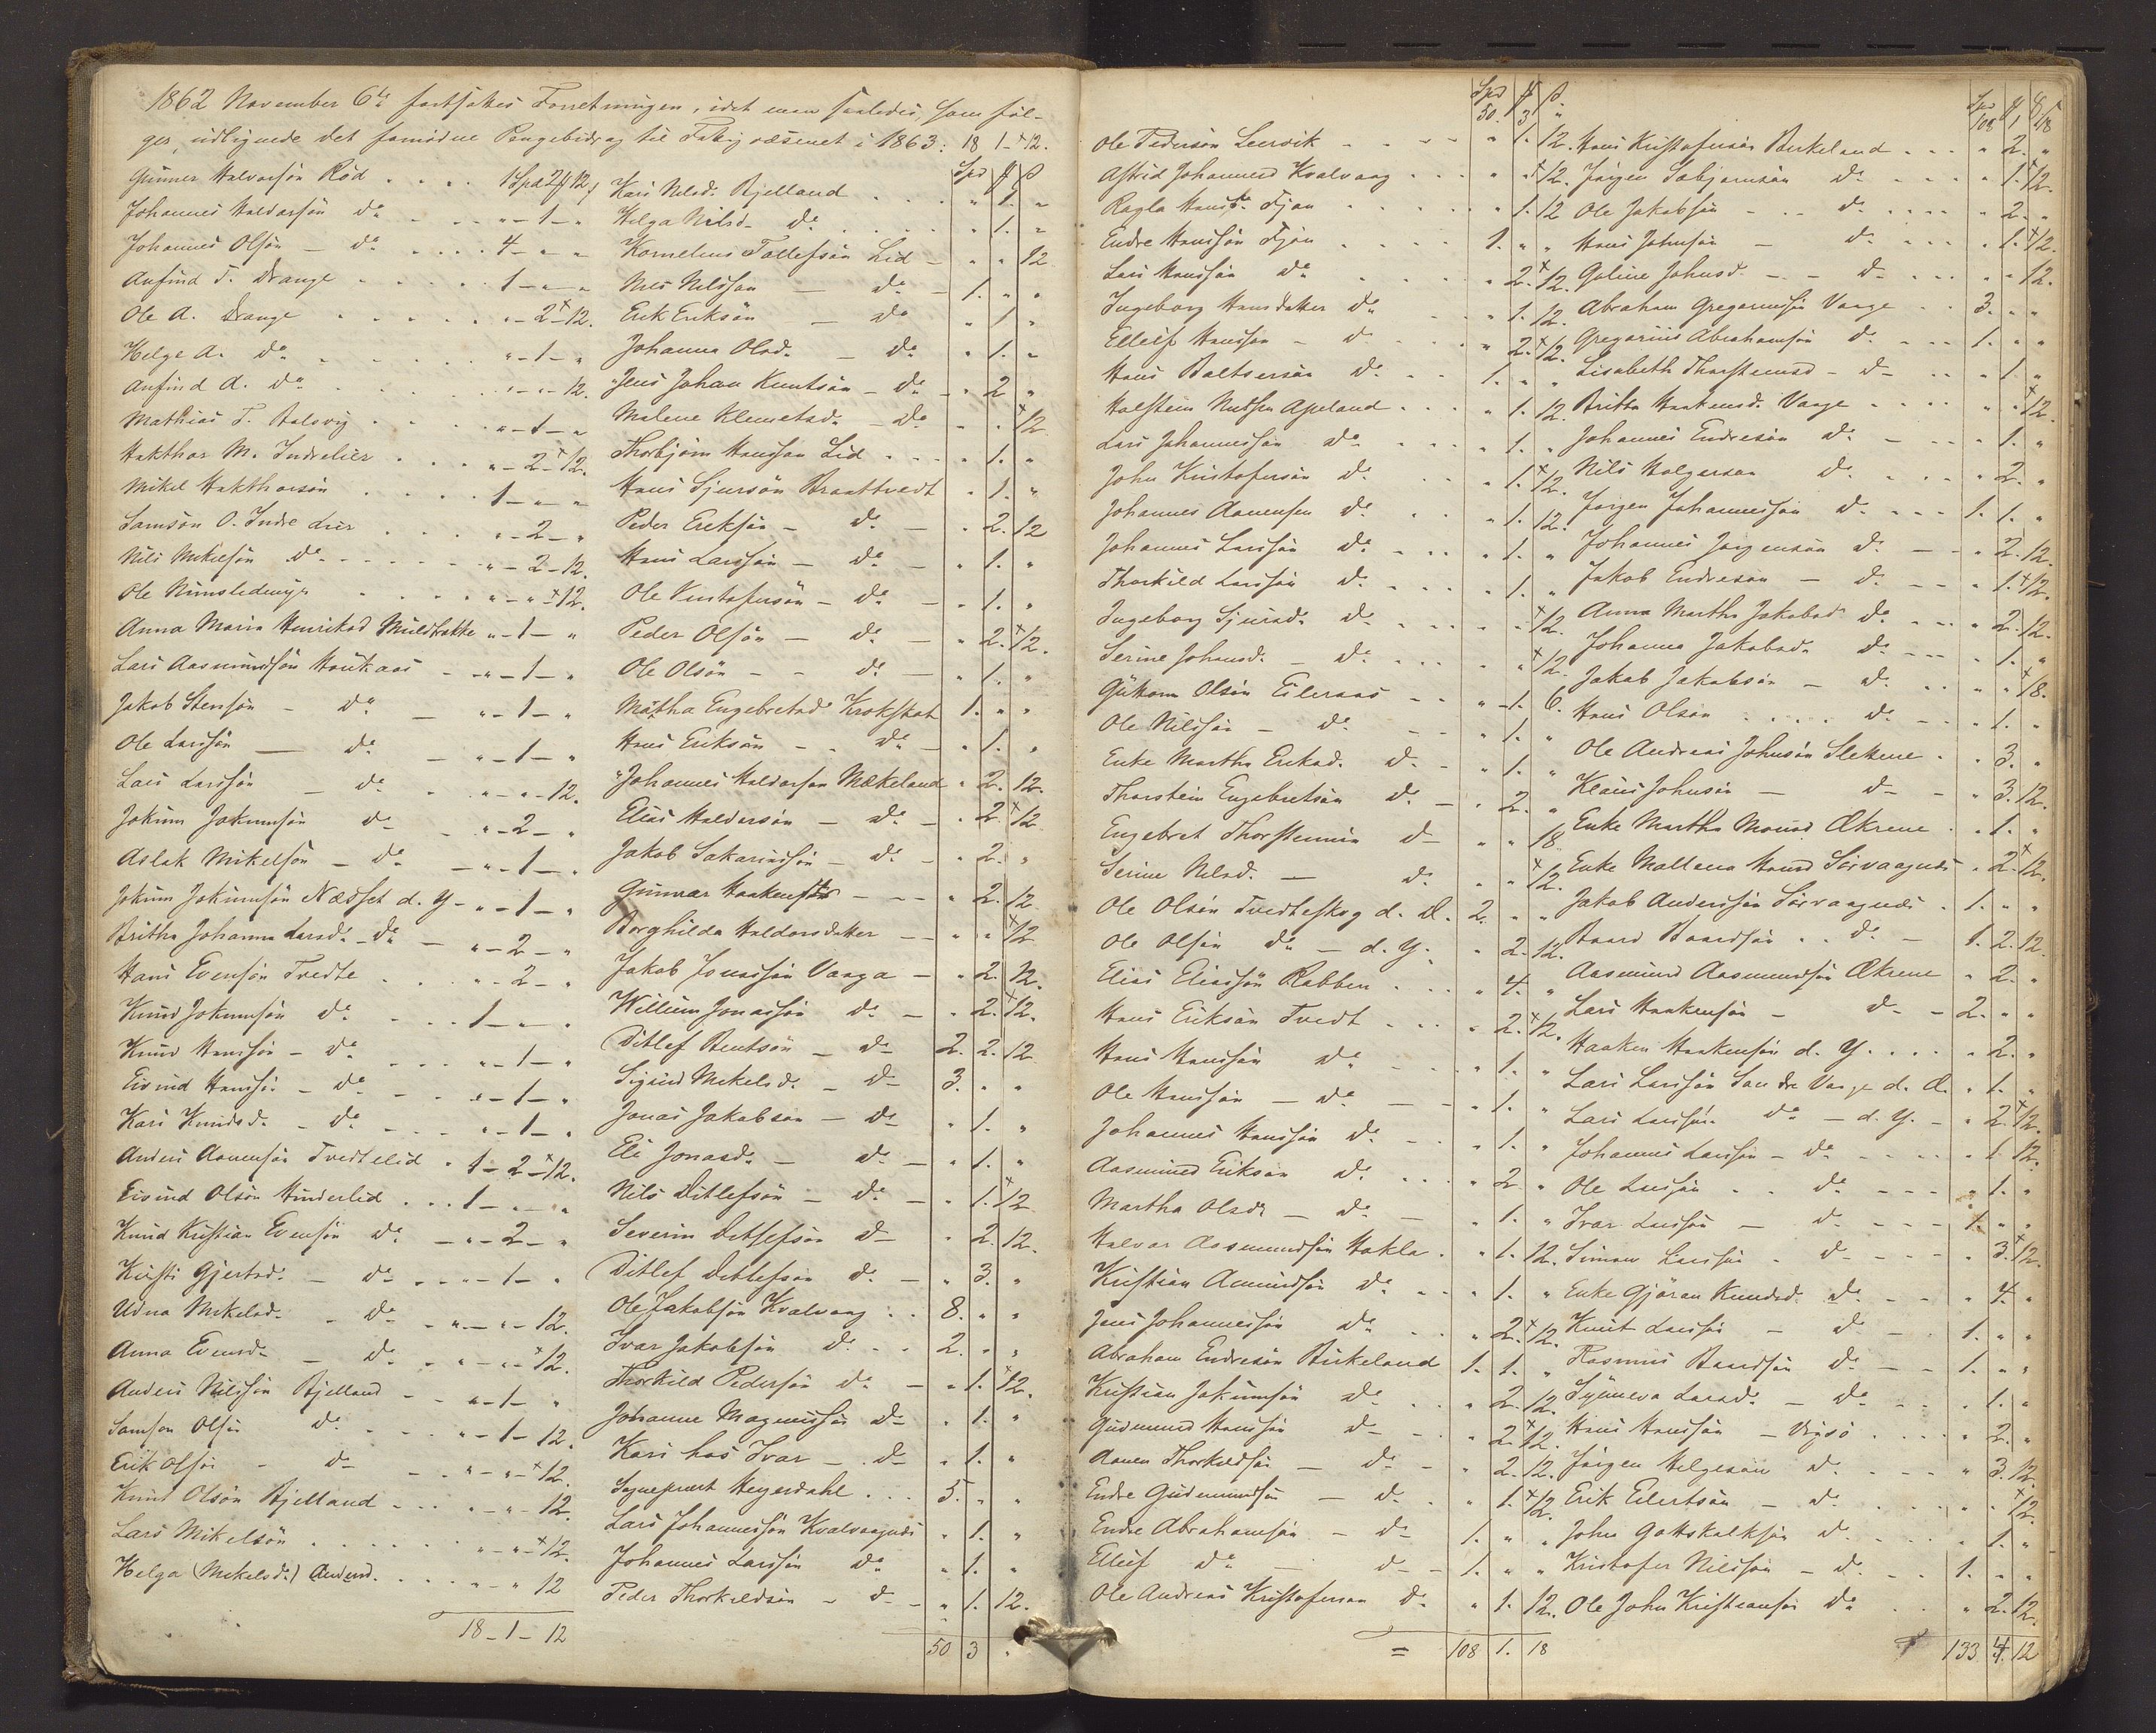 1862 November 6te fortsattes Forretningen, idet man saaledes, som føl-
ger, udlignede det fornødne Pengebidrag til Fattigvæsenet i 1863: 18 1-12.
Gunner Halvorsön Röd . . . . 1 Spd 2 # 12
Johannes Haldorsön do . . „ - 1 - „
Johannes Olsön - do . . . . 4 - „ - „
Anfind T. Drange . . . . . 1 - „ - „
Ole A. Drange . . . . . „ - 2 - 12.
Helge A. do . . . . . . „ - 1 - „
Anfind A. do . . . . . . „ - „ - 12.
Mathias T. Aalsvig . . . . „ - 1 - „
Hakthor M. Indrelier . . . „ - 2 - 12.
Mikel Hakthorsön . . . . 1 - „ - „
Samsön O. Indre Lier . . . „ - 2 - „
Nils Mikelsön do . . . . „ - 2 - 12.
Ole . . . . „ - „ - 12.
Anna Maria Henriksd „ - 1 - „
Lars Aasmundsön Haukaas - „ - 1 - „
Jakob Stensön - do - „ - 1 - „
Ole Larssön - do - „ - 1 - „
Lars Larssön - do - „ - „ - 12.
Jokum Jokumsön do - „ - 2 - „
Aslak Mikelsön - do - „ - 1 - „
Jokum Jokumsön Næsset d. Y - „ - 1 - „
Britha Johanna Larsd. do - „ - 2 - „
Hans Evensön Tvedte . . „ - 2 - „
Knud Jokumsön do . . . 1 - „ - „
Knud Hanssön - do . . . „ - 1 - „
Eivind Hanssön - do - . „ - 1 - „
Kari Knudsd. - do - . . „ - 1 - „
Anders Aanensön Tvedtelid . 1 - 2 - 12.
Eivind Olsön Hinderlid . . . 1 - „ - „
Knud Kristian Evensön do - „ - 2 - „
Kristi Gjertsd. - do - . . „ - 1 - „
Udna Mikelsd. - do - „ - „ - 12.
Anna Evensd. - do - „ - „ - 12.
Anders Nilssön Bjelland - - „ - 1 - „
Samson Olsön do . . . „ - 1 - 12.
Erik Olsön - do - . . „ - „ - 12.
Knut Olsön Bjelland - . . . „ - „ - 12.
Lars Mikelsön . . . . . . „ - „ - 12.
Helga (Mikelsd.) Andersd. . . . „ - „ 12
18 - 1 - 12
Spd # ß
Kari Nilsd. Bjelland . . . „ 1. „
Helga Nilsd - do . . . . „ 1. „
Kornelius Tollefsön Lid - „ „ 12
Nils Nilsson - do - 1. „ „
Erik Eriksön - do „ 1 „
Johanna Olsd. - do „ 1. „
Jens Johan Knutsön - do - „ 2 „
Malene Klemetsd. - do - „ „ 12
Thorbjörn Hansson Lid . . . „ 1. „
Hans Sjursön Braattvedt „ 1. „
Peder Eriksön - do - „ 2. 12
Hans Larssön - do - „ 1. „
Ole Kristofersön - do - „ 1. „
Peder Olsön - do - „ 2. 12.
Ole Olsön - - do - „ 1. „
Martha Engebretsd Krokskot 1. „ „
Hans Eriksön - - do - „ 1. „
Johannes Haldorson Mækeland „ 2. 12.
Elias Haldorsön - do - „ 2. 12
Jakob Sakariassön - do - „ 2. „
Gunnar Haakensön - - - „ 2. 12
Borghilda Haldorsdatter - - „ „ 12
Jakob Jonassön Vaaga - „ 2. 12.
Willum Jonassön do - „ 2. 12.
Ditlef Bentsön - do 2. 2. 12
Sigrid Mikelsd. - do 3. „ „
Jonas Jakobson - do „ 1. „
Eli Jonasd. - do - „ 1. „
Nils Ditlefsön - do - „ 1. 12
Severin Ditlefsön do „ 2. 12.
Ditlef Ditlefson do - „ 3. „
Ole Jakobsön Kvalvaag . . 8. „ „
Ivar Jakobsön do . . 2. „ „
Thorkild Pedersön do - „ 1. 12.
Johanne Magnussön do „ 1. „
Kari hos Ivar - do „ 1. „
Sogneprest Heyerdahl . . . 5. „ „
Lars Johannessön Kvalvaagnæs „ 1. „
Johannes Larssön do „ 1. „
Peder Thorkildsön - do - „ 1. 12.
50 3 „
Spd # ß
50. 3 „
Ole Pedersön Leervik - . - - „ 1. 12.
Astrid Johannesd Kvalvaag . . . „ „ 12.
Ragla Hansd. Tjön . . . . „ 1. 12
Endre Hanssön Tjön . . . . 1. „ „
Lars Hanssön do . . . „ 2. 12.
Ingeborg Hansdatter do . . „ 1. 12.
Ellef Hansson - do . . „ 2. 12.
Hans Baltsersön do . . 1. „ „
Halstein Nutsen Apeland . . . „ 1. 12.
Lars Johannessön do . . . „ 1. „
John Kristofersön do . . „ 1. 12.
Johannes Aanensen do . . „ 1. 12.
Johannes Larssön do . . „ 1. „
Thorkild Larssön do . . . „ 1. „
Ingeborg Sjursd. do . . . „ „ 12.
Serine Johansd. - do . . . „ „ 12.
Guttorm Olsön Eileraas - - „ 1. 6.
Ole Nilssön - do - - „ 1. „
Enke Martha Eriksd. do - „ 1. „
Thorstein Engebretsön do - „ 2. „
Engebret Thorsteinsen do „ „ 18
Serine Nilsd. - do . „ „ 12.
Ole Olsön Tvedteskog d. Æ. 2. „ „
Ole Olsön do - d. Y. „ 2. 12.
Elias Eliassön Rabben . . . „ 4. „
Hans Eriksön Tvedt - . . „ 2. 12.
Hans Hanssön do - . . „ 1. „
Ole Hanssön - do - - „ 1. „
Johannes Hanssön do - „ 1. „
Aasmund Eriksön do . . . „ 2 „
Martha Olsdr - do - „ 1. „
Halvor Aasmundsön Hakla . „ 1. 12.
Kristian Aamundsön do . . „ 1. „
Jens Johannessön do . . „ 2. 12.
Abraham Endresön Birkeland 1. 1. „
Kristian Jokumsön do . . „ 2. 12.
Gudmund Hanssön do - . „ 2. 12.
Aanen Thorkildsön - do - „ 2. 12.
Endre Gudmundsön - do . „ 1. 12.
Endre Abrahamsön - do 1. „ „
Ellef do - do - 1. „ „
Ole Andreas Kristoferson do „ 1. 12.
= 108 1. 18
Spd # ß
108 1 18
Hans Kristofersön Berkeland . . . „ 2. „
Jörgen Sæbjørnsön do . . . „ 1. 12.
Ole Jakobsön - . . do . . . . „ 2. „
Hans Johnsön - do . . . . „ 1. 12.
Goline Johnsd. - - do . . . „ „ 12.
Abraham Gregoriussön Vaage . . 3. „ „
Gregorius Abrahamsön do . . . 1. „ „
Lisabeth Thorsteinsd - do . . „ 1 „
Britha Haakensd. Vaage . . . . „ „ 12.
Johannes Endresön do - . . . „ 1. „
Nils Holgersen do . . . . „ 2. „
Jörgen Johannessön do . . . 1. 1. „
Johannes Jörgensön do - - „ 2. 12.
Jakob Endresön - do - - „ 1. 12.
Anna Martha Jakobsd do . . . „ 2. 12.
Johanna Jakobsd. do - - - „ 1. „
Jakob Jakobsön - do . . „ „ 18.
Hans Olsön . . . . do - . - „ 1. „
Ole Andreas Johnsön Slekene . „ 3. „
Klaus Johnsön - do - „ 3. 12.
Enke Martha Monsd Økrene . „ 1. „
Enke Mallena Hansd Sörvaagnæs . 2. 12.
Jakob Anderssön Sörvaagnæs . 1. „ „
Baard Baardsön . . do - 1. 2. 12
Aasmund Aasmundsön Økrene „ 2. „
Lars Haakensön - do - 2. „ „
Haaken Haakensön d. Y. . . . „ 2. „
Lars Larssön Søndre Vaage d. Æ. „ 1. „
Lars Larssön do - d. Y. - „ 2. 12.
Johannes Larssön - do . . . „ 1. 12.
Ole Larssön . . do - - - „ 1. „
Ivar Larssön - do - - - 1. „ „
Simon Larssön - do - - - „ 3. 12.
Enke Gjöran Knudsd. do - - „ 4. „
Knut Larssön - do - . 1. „ „
Rasmus Baardsön do - - 1. „ „
Synneva Larsd. - do - . . „ 1. „
Hans Hanssön - Vigsö . . . . „ 2. „
Jörgen Helgesön do . . . . „ 3. 12.
Erik Eilertsön - do . . . . „ „ 12.
John Gottskalksön do . . . . „ 1. „
Kristofer Nilssön - do . . . 1. „ „
Ole John Kristiansön do . . „ 2. 12.
133. 4. 12